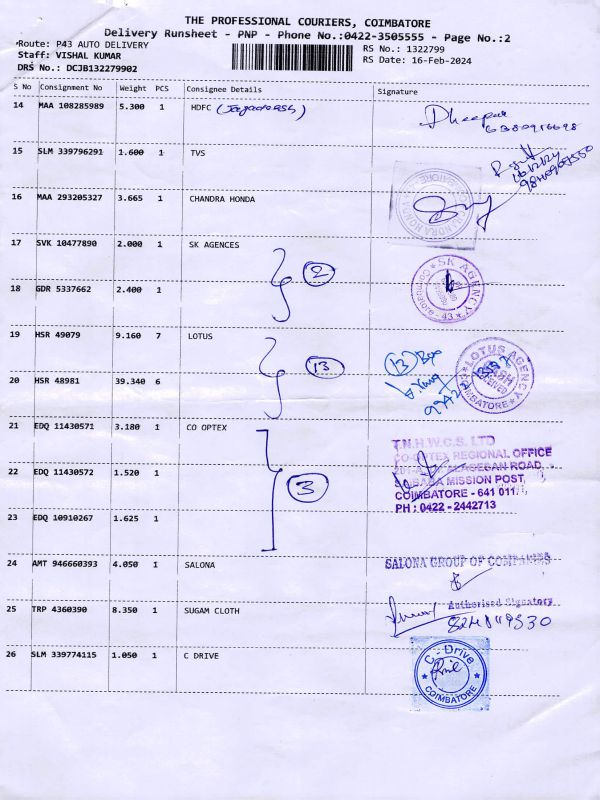 THE PROFESSIONAL COURIERS, COIMBATORE
Delivery Runsheet - PNP - Phone No.:0422-3505555 - Page No.:2
Route: P43 AUTO DELIVERY
Staff: VISHAL KUMAR
DRS No.: DCJB132279902
RS No.: 1322799
RS Date: 16-Feb-2024
S No Consignment No Weight PCS Consignee Details Signature
14 MAA 108285989 5.300 1 HDFC
6380916698
15 SLM 339796291 1.600 1 TVS
16 MAA 293205327 3.665 1 CHANDRA HONDA
CHANDRA HONDA
17 SVK 10477890 2.000 1 SK AGENCES
2
SK AGENCY
Coimbatore - 43
18 GDR 5337662 2.400 1
19 HSR 49079 9.160 7 LOTUS
13
13
LOTUS AGENCY
COIMBATORE
20 HSR 48981 39.340 6
21 EDQ 11430571 3.180 1 CO OPTEX
T.N.H.W.C.S. LTD
CO-OPTEX REGIONAL OFFICE
ROAD,
MISSION POST,
COIMBATORE - 641 011.
PH : 0422 - 2442713
22 EDQ 11430572 1.520 1
3
23 EDQ 10910267 1.625 1
24 AMT 946660393 4.050 1 SALONA
SALONA GROUP OF COMPANIES
Authorised Signatory
25 TRP 4360390 8.350 1 SUGAM CLOTH
26 SLM 339774115 1.050 1 C DRIVE
C - Drive
COIMBATORE